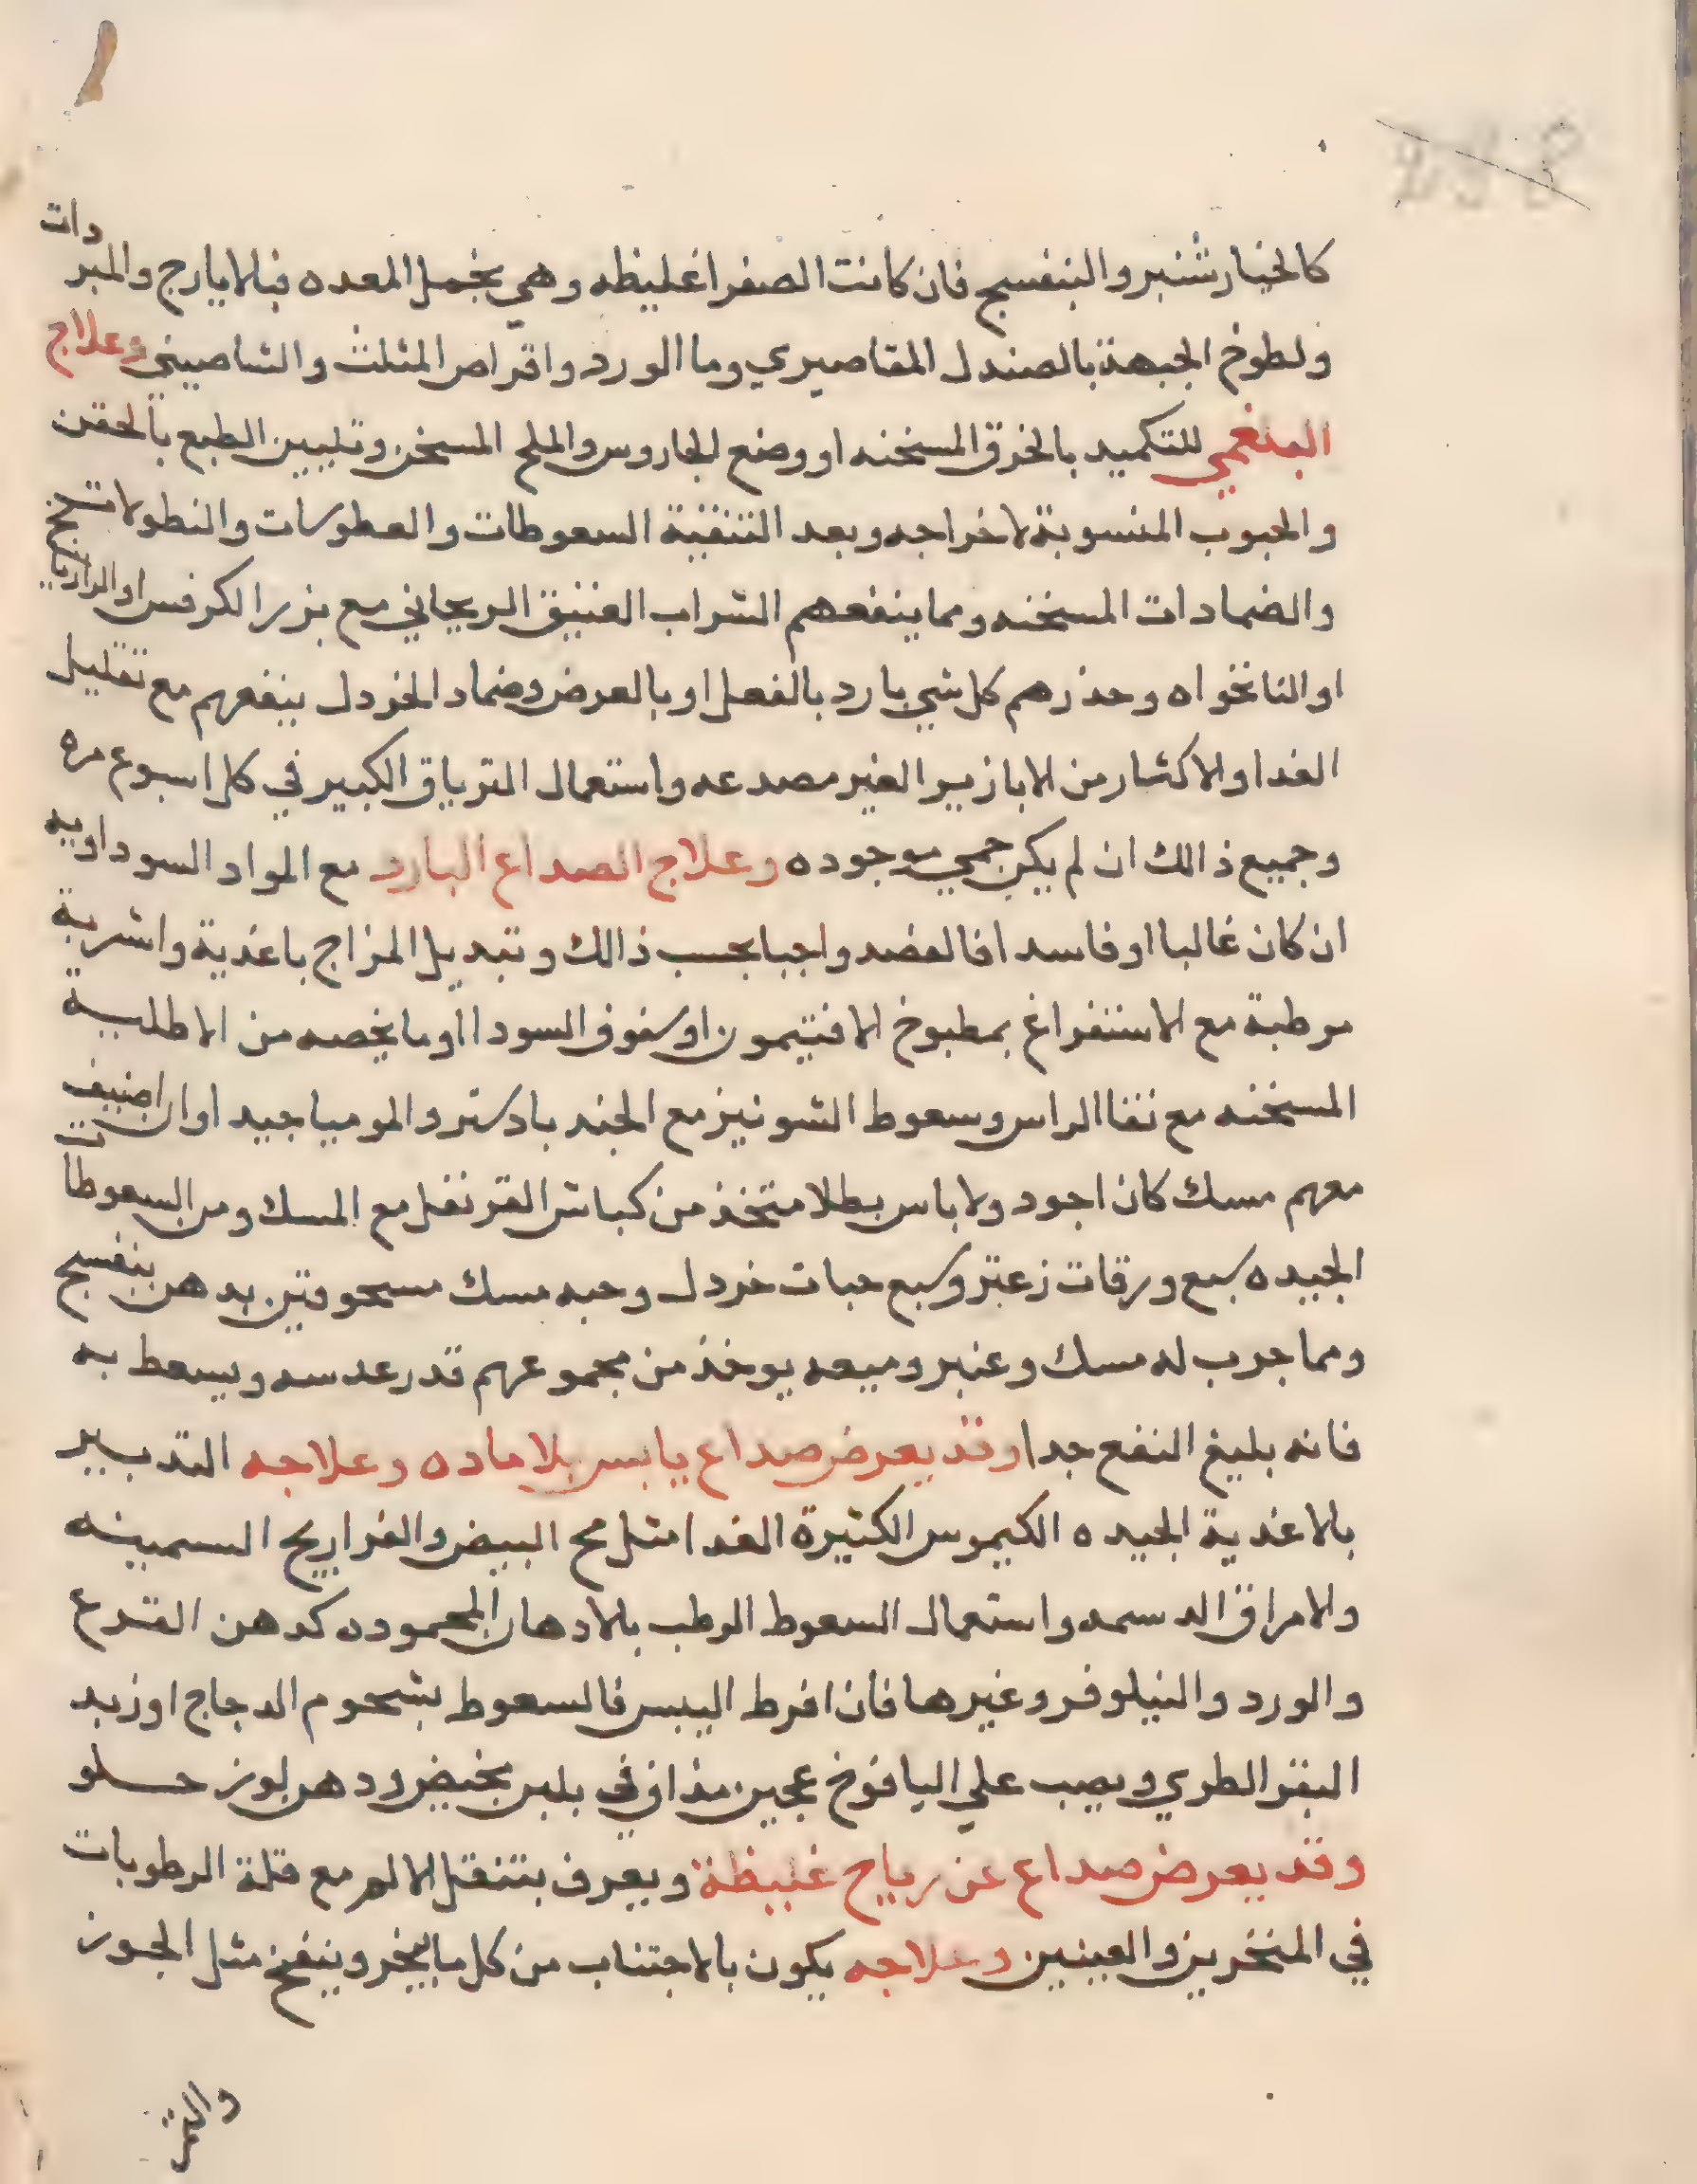 كالخيار شنبر والبنفسج فان كانت الصفرا غليظه وهي بخمل المعده فبالايارج والمبردات
ولطوخ الجبهة بالصندل المقاصيري وما الورد واقراص المثلث والشاصيني وعلاج
البلغمي للتكميد بالخرق المسخنه او وضع الجاروس والملح المسخن وتليين الطبع بالحقن
والحبوب المنسوبة لاخراجه وبعد التنقية السعوطات والعطوسات والنطولات
والضمادات المسخنه ومما ينفعهم الشراب العتيق الريحاني مع بزر الكرفس او الرازيانج
او النانخواه وحذرهم كل شي بارد بالفعل او بالعرض وضماد الخردل ينفعهم مع تقليل
الغدا والاكثار من الابازير الغير مصدعه واستعمال الترياق الكبير في كل اسبوع مره
وجميع ذالك ان لم يكن حمي موجوده وعلاج الصداع البارد مع المواد السوداويه
ان كان غالبا او فاسدا فالفصد واجبا بحسب ذالك وتبديل المزاج باغذية واشربة
مرطبة مع الاستفراغ بمطبوخ الافتيمون او سفوف السودا او ما يخصه من الاطلية
المسخنه مع نقا الراس وسعوط الشونيز مع الجند بادستر والموميا جيد او ان اضيف
معهم مسك كان اجود ولا باس بطلا متخذ من كباش القرنفل مع المسك ومن السعوطات
الجيده سبع ورقات زعتر وسبع حبات خردل وحبه مسك مسحوقين بدهن بنفسج
ومما جرب له مسك وعنبر وميعه يوخذ من مجموعهم قدر عدسه ويسعط به
فانه بليغ النفع جدا وقد يعرض صداع يابس بلا ماده وعلاجه التدبير
بالاغذية الجيده الكيموس الكثيرة الغدا مثل مح البيض والفراريج السمينه
والامراق الدسمه واستعمال السعوط الرطب بالادهان المحموده كدهن القرع
والورد والنيلوفر وغيرها فان افرط اليبس فالسعوط بشحوم الدجاج او زبد
البقر الطري ويصب علي اليافوخ عجين مذاق في بلبن مخيض ودهن لوز حلو
وقد يعرض صداع عن رياح غليظة ويعرف بتنقل الالم مع قلة الرطوبات
في المنخرين والعينين وعلاجه يكون بالاجتناب من كل ما يبخر وينفخ مثل الجوز
والتمر